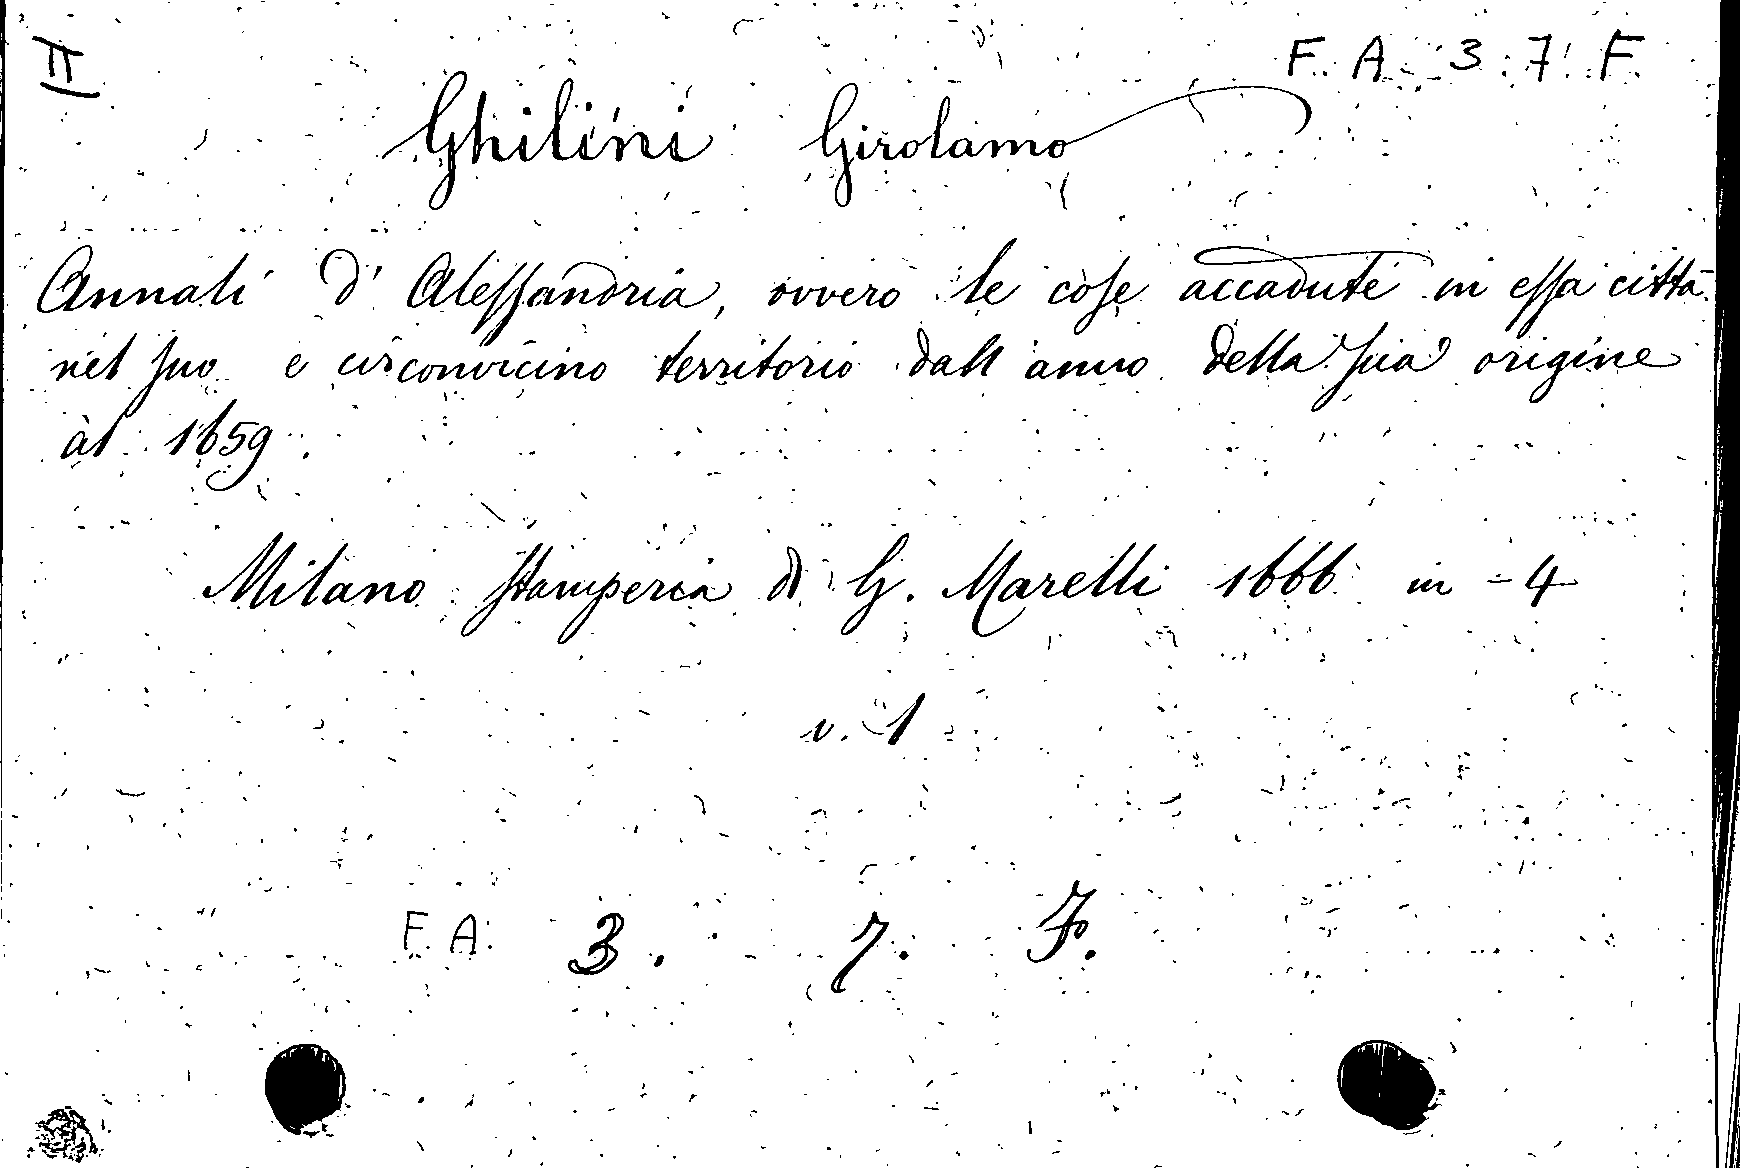 II
F. A. 3. 7. F.
Ghilini Girolamo
Annali d'Aleſsandria, ovvero le coſe accadute in eſſa città
nel ſuo e circonvicino territorio dall'anno della ſua origine
al 1659.
Milano Stamperia di G. Marelli 1666 in-4
v. 1
F. A. 3. 7. F.